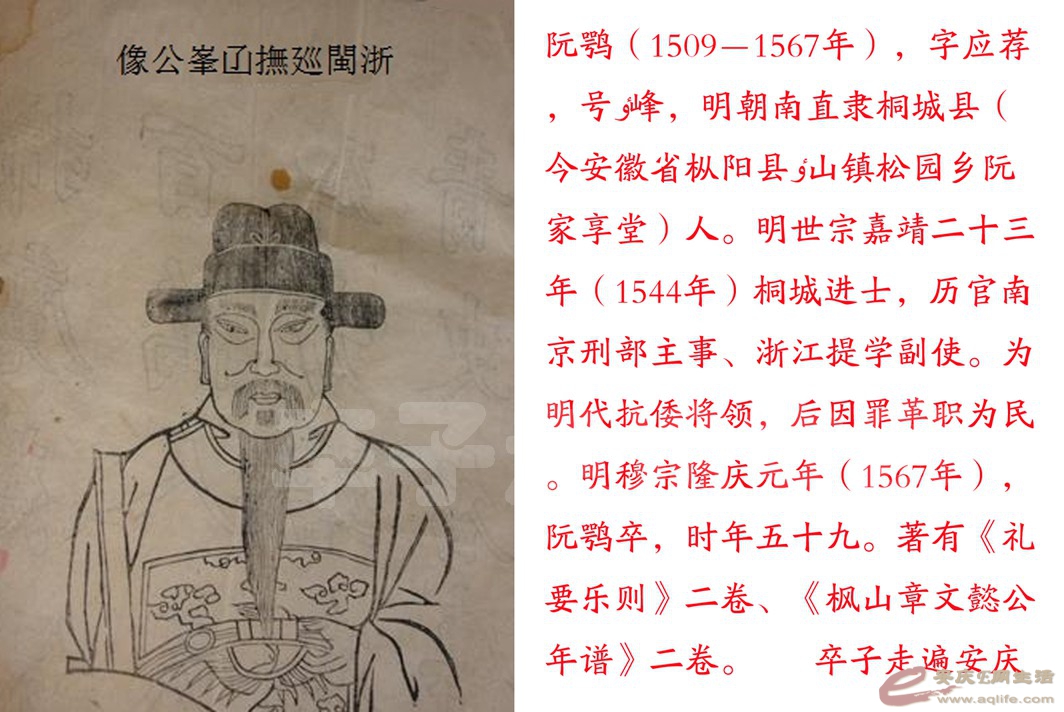 浙閩廵撫峯公像
阮鹗（1509—1567年），字应荐
，号峰，明朝南直隶桐城县（
今安徽省枞阳县山镇松园乡阮
家享堂）人。明世宗嘉靖二十三
年（1544年）桐城进士，历官南
京刑部主事、浙江提学副使。为
明代抗倭将领，后因罪革职为民
。明穆宗隆庆元年（1567年），
阮鹗卒，时年五十九。著有《礼
要乐则》二卷、《枫山章文懿公
年谱》二卷。 卒子走遍安庆
生活
www.aqlife.com